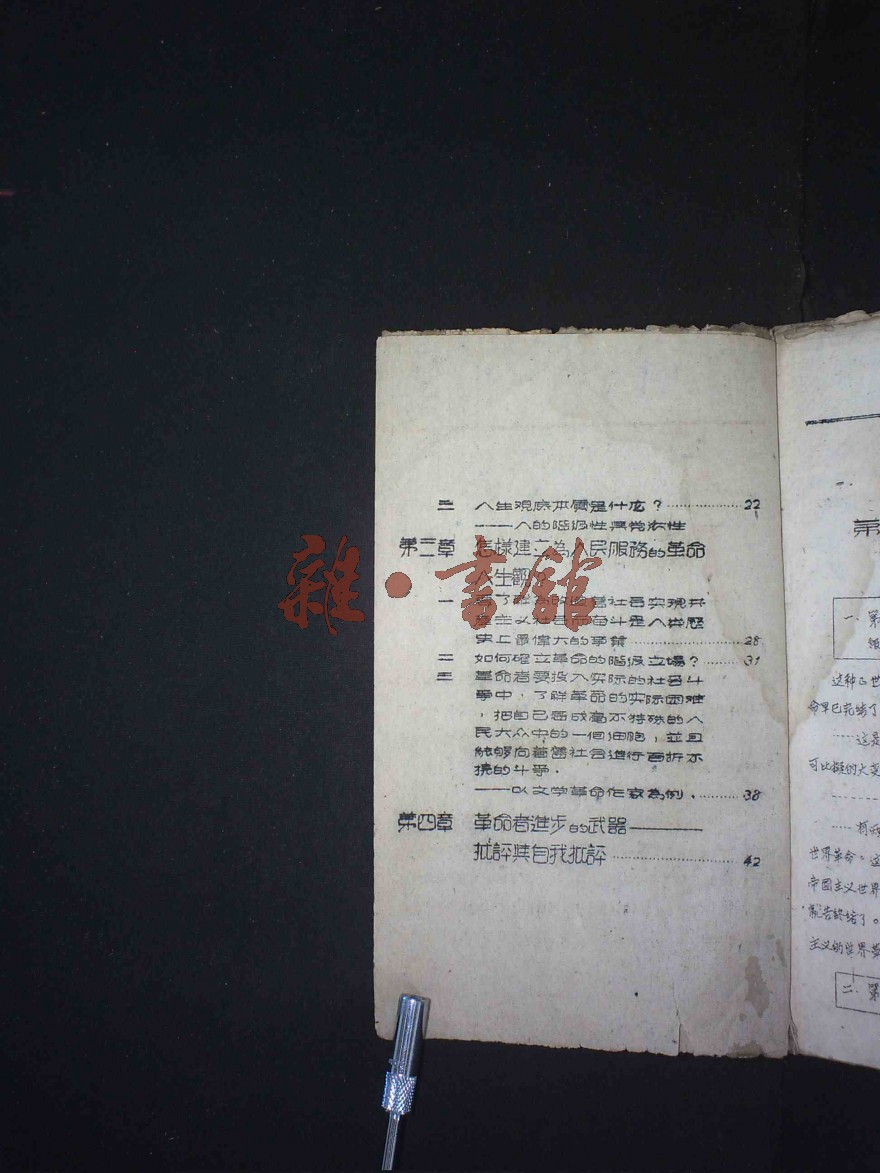 三 人生观底本质是什么？ 22
——人的階級性與党派性
第三章 怎樣建立為人民服務的革命
人生觀
一 會实現共
產主义社会而奋斗是人类歷
史上最偉大的事業 28
二 如何確立革命的階級立場？ 31
三 革命者要投入实际的社会斗
爭中，了解革命的实际困难
，把自己看成毫不特殊的人
民大众中的一個细胞，並且
能够向舊社会進行百折不
撓的斗爭．
——以文学革命作家為例． 38
第四章 革命者進步的武器———
批評與自我批評 42
雜·書館
一、
第
一、第
这种的世
命早已完结了
……这是
可比拟的大
世界革命。这
帝国主义世界
宣告終结了。
主义的世界革
二、第